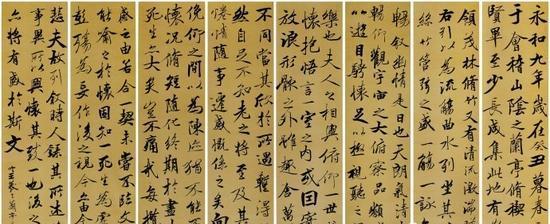 永和九年歲在癸丑暮春
于會稽山陰之蘭亭脩禊
賢畢至少長咸集此地有
領茂林脩竹又有清流激湍
右引以為流觴曲水列坐其
絲竹管弦之盛一觴一詠
暢叙幽情是日也天朗氣清
暢仰觀宇宙之大俯察品類
以遊目騁懷足以
樂也夫人之相與俯仰一世
懷抱悟言一室之內或因寄
放浪形骸之外雖趣舍萬
不同當其欣於所遇暫得
然自足不知老之將至及其
情隨事遷感慨係之矣向
俛仰之間以為陳迹猶不能
懷況脩短隨化終期於盡
死生亦大矣豈不痛哉
感之由若合一契未嘗不臨文
喻之於懷固知一死生
彭殤為妄作後之視今亦由今
悲夫故列叙時人錄其所述
事異所以興懷其致一也後之
亦將有感於斯文